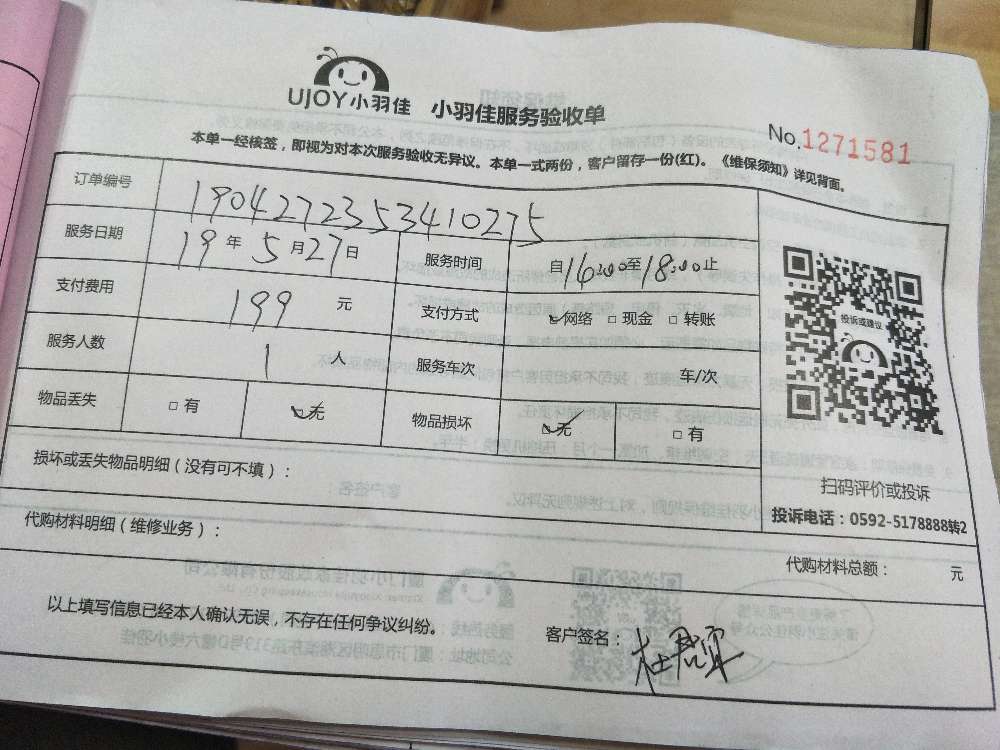 UJOY小羽佳 小羽佳服务验收单
No.1271581
本单一经核签，即视为对本次服务验收无异议。本单一式两份，客户留存一份(红)。《维保须知》详见背面。
订单编号 1904272353410275
服务日期 19年5月27日 服务时间 自16:00至18:00止
支付费用 199元 支付方式 ☑网络 □现金 □转账
服务人数 1人 服务车次 车/次
物品丢失 □有 ☑无 物品损坏 ☑无 □有
投诉或建议
扫码评价或投诉
投诉电话：0592-5178888转2
损坏或丢失物品明细（没有可不填）：
代购材料明细（维修业务）：
代购材料总额： 元
以上填写信息已经本人确认无误，不存在任何争议纠纷。
客户签名：